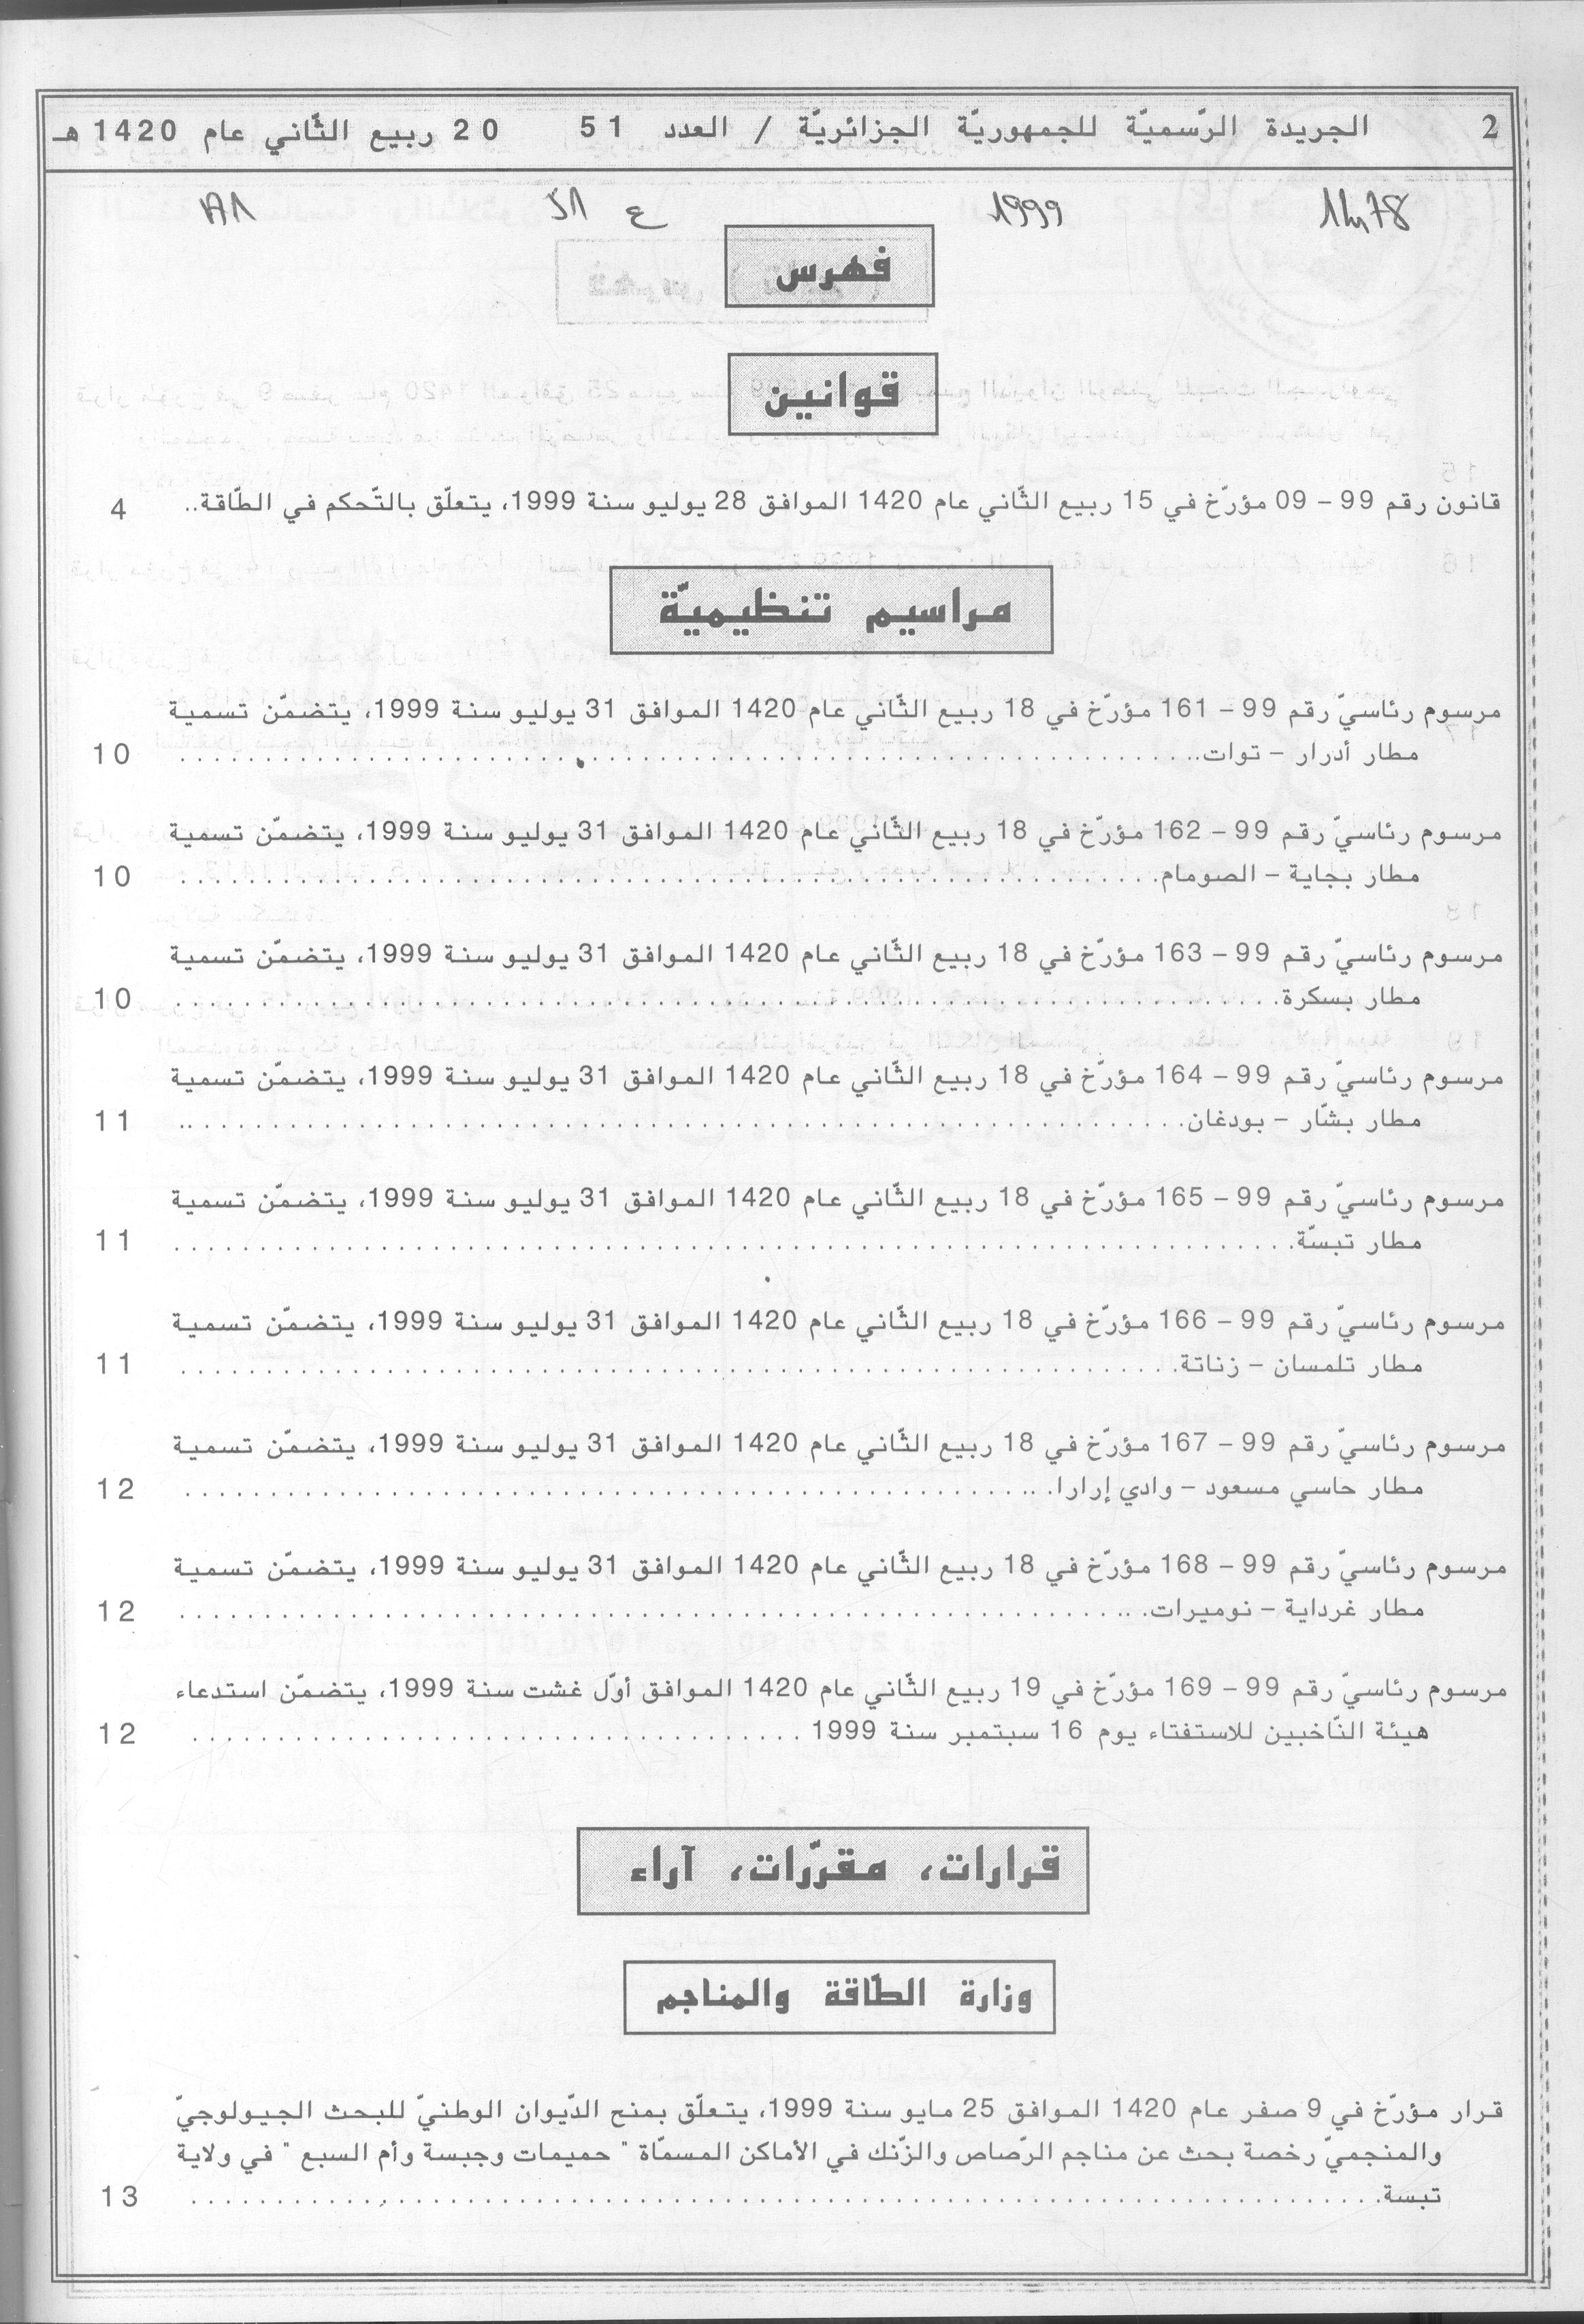 2 الجريدة الرّسميّة للجمهوريّة الجزائريّة / العدد 51 20 ربيع الثّاني عام 1420 هـ
1999 ع 51
فهرس
قوانين
قانون رقم 99 – 09 مؤرّخ في 15 ربيع الثّاني عام 1420 الموافق 28 يوليو سنة 1999، يتعلّق بالتّحكم في الطّاقة.. 4
مراسيم تنظيميّة
مرسوم رئاسيّ رقم 99 – 161 مؤرّخ في 18 ربيع الثّاني عام 1420 الموافق 31 يوليو سنة 1999، يتضمّن تسمية
مطار أدرار – توات.......... 10
مرسوم رئاسيّ رقم 99 – 162 مؤرّخ في 18 ربيع الثّاني عام 1420 الموافق 31 يوليو سنة 1999، يتضمّن تسمية
مطار بجاية – الصومام.......... 10
مرسوم رئاسيّ رقم 99 – 163 مؤرّخ في 18 ربيع الثّاني عام 1420 الموافق 31 يوليو سنة 1999، يتضمّن تسمية
مطار بسكرة.......... 10
مرسوم رئاسيّ رقم 99 – 164 مؤرّخ في 18 ربيع الثّاني عام 1420 الموافق 31 يوليو سنة 1999، يتضمّن تسمية
مطار بشّار – بودغان.......... 11
مرسوم رئاسيّ رقم 99 – 165 مؤرّخ في 18 ربيع الثّاني عام 1420 الموافق 31 يوليو سنة 1999، يتضمّن تسمية
مطار تبسّة.......... 11
مرسوم رئاسيّ رقم 99 – 166 مؤرّخ في 18 ربيع الثّاني عام 1420 الموافق 31 يوليو سنة 1999، يتضمّن تسمية
مطار تلمسان – زناتة.......... 11
مرسوم رئاسيّ رقم 99 – 167 مؤرّخ في 18 ربيع الثّاني عام 1420 الموافق 31 يوليو سنة 1999، يتضمّن تسمية
مطار حاسي مسعود – وادي إرارا.......... 12
مرسوم رئاسيّ رقم 99 – 168 مؤرّخ في 18 ربيع الثّاني عام 1420 الموافق 31 يوليو سنة 1999، يتضمّن تسمية
مطار غرداية – نوميرات.......... 12
مرسوم رئاسيّ رقم 99 – 169 مؤرّخ في 19 ربيع الثّاني عام 1420 الموافق أوّل غشت سنة 1999، يتضمّن استدعاء
هيئة النّاخبين للاستفتاء يوم 16 سبتمبر سنة 1999 .......... 12
قرارات، مقرّرات، آراء
وزارة الطّاقة والمناجم
قرار مؤرّخ في 9 صفر عام 1420 الموافق 25 مايو سنة 1999، يتعلّق بمنح الدّيوان الوطنيّ للبحث الجيولوجيّ
والمنجميّ رخصة بحث عن مناجم الرّصاص والزّنك في الأماكن المسمّاة " حميمات وجبسة وأم السبع " في ولاية
تبسة.......... 13